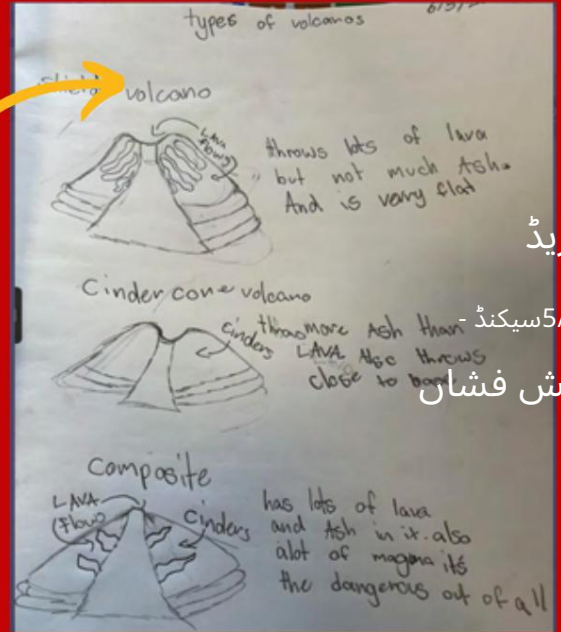 types of volcanos
6/5/
shield volcano
LAVA
flows
throws lots of lava
but not much Ash.
And is very flat
Cinder cone volcano
cinders
throws more Ash than
LAVA Also throws
close to base
composite
LAVA
(Flow)
Cinders
has lots of lava
and Ash in it. also
alot of magma its
the dangerous out of all
یڈ
5سیکنڈ -
ش فشاں